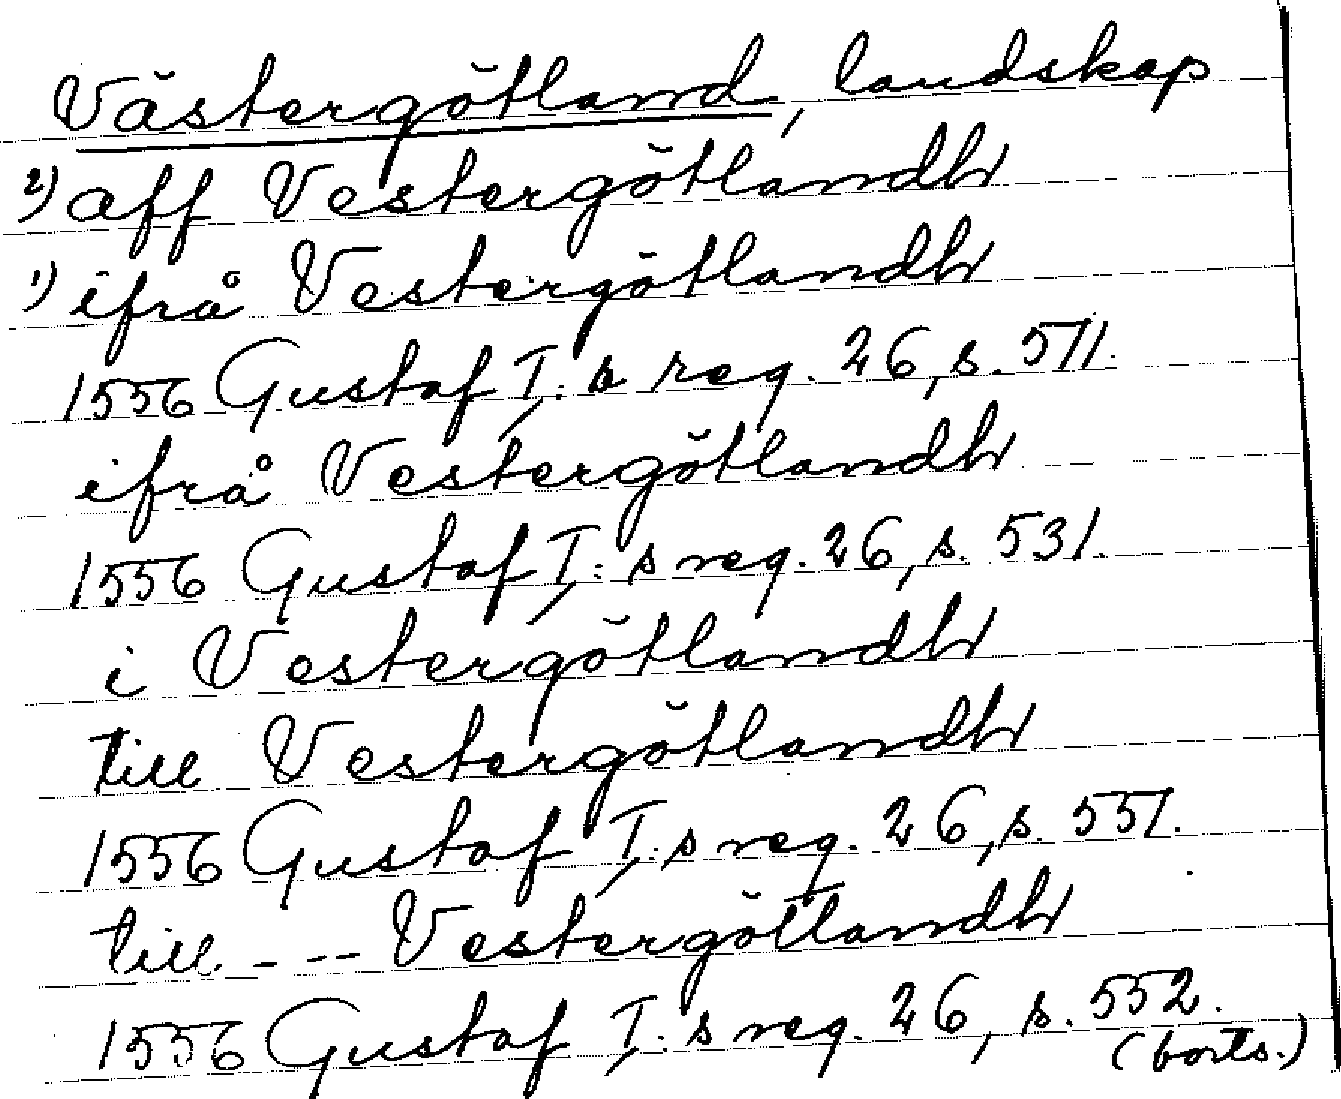 Västergötland, landskap
2) aff Vestergötlandh
1) ifrå Vestergötlandh
1556 Gustaf I:s reg. 26, s. 511.
ifrå Vestergötlandh
1556 Gustaf I:s reg. 26, s. 531.
i Vestergötlandh
till Vestergötlandh
1556 Gustaf I:s reg. 26, s. 551.
till --- Vestergötlandh
1556 Gustaf I:s reg. 26, s. 552.
(forts.)